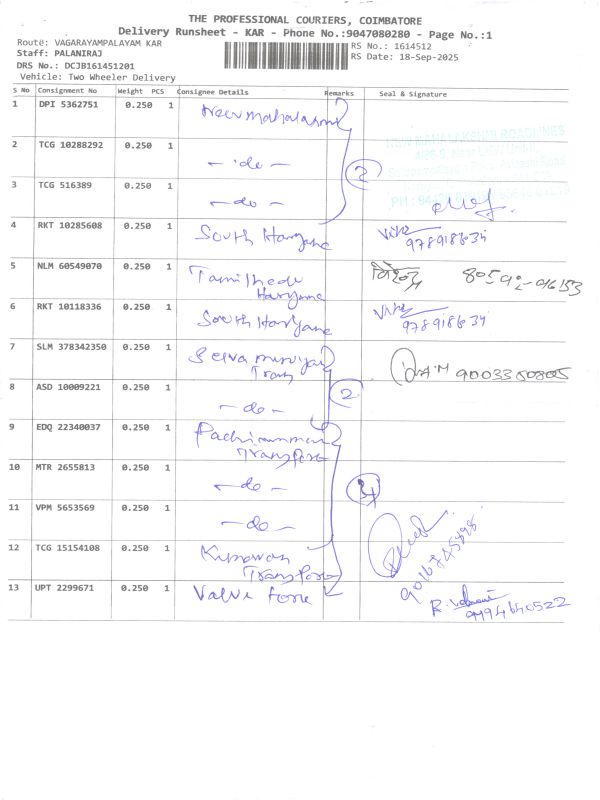 THE PROFESSIONAL COURIERS, COIMBATORE
Delivery Runsheet - KAR - Phone No.:9047080280 - Page No.:1
Route: VAGARAYAMPALAYAM KAR
RS No.: 1614512
Staff: PALANIRAJ
RS Date: 18-Sep-2025
DRS No.: DCJB161451201
Vehicle: Two Wheeler Delivery
S No Consignment No Weight PCS Consignee Details Remarks Seal & Signature
1 DPI 5362751 0.250 1
NEW MAHALAKSHMI ROADLINES
2 TCG 10288292 0.250 1 - do -
2
3 TCG 516389 0.250 1 - do -
4 RKT 10285608 0.250 1 South Haryane
978918634
5 NLM 60549070 0.250 1 Tamilhedu
Haryane
6 RKT 10118336 0.250 1 South Haryane
978918634
7 SLM 378342350 0.250 1
Trans
9003350805
8 ASD 10009221 0.250 1 - do -
2
9 EDQ 22340037 0.250 1
Transport
10 MTR 2655813 0.250 1 - do -
11 VPM 5653569 0.250 1 - do -
12 TCG 15154108 0.250 1
Transport
9016845898
13 UPT 2299671 0.250 1 Valve Forre
9994640522